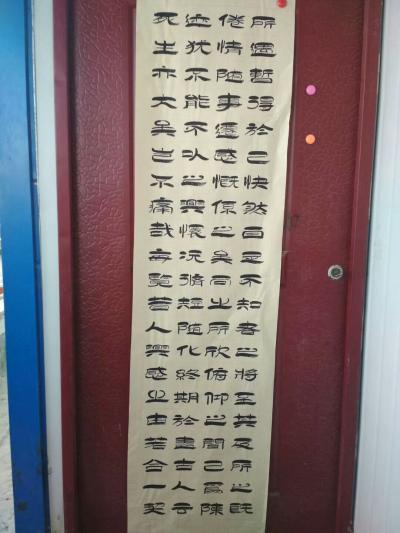 所遇暫得於己快然自足不知老之將至其及所之既
倦情隨事遷感慨係之矣向之所欣俯仰之間已為陳
迹猶不能不以之興懷況脩短隨化終期於盡古人云
死生亦大矣豈不痛哉每覽昔人興感之由若合一契